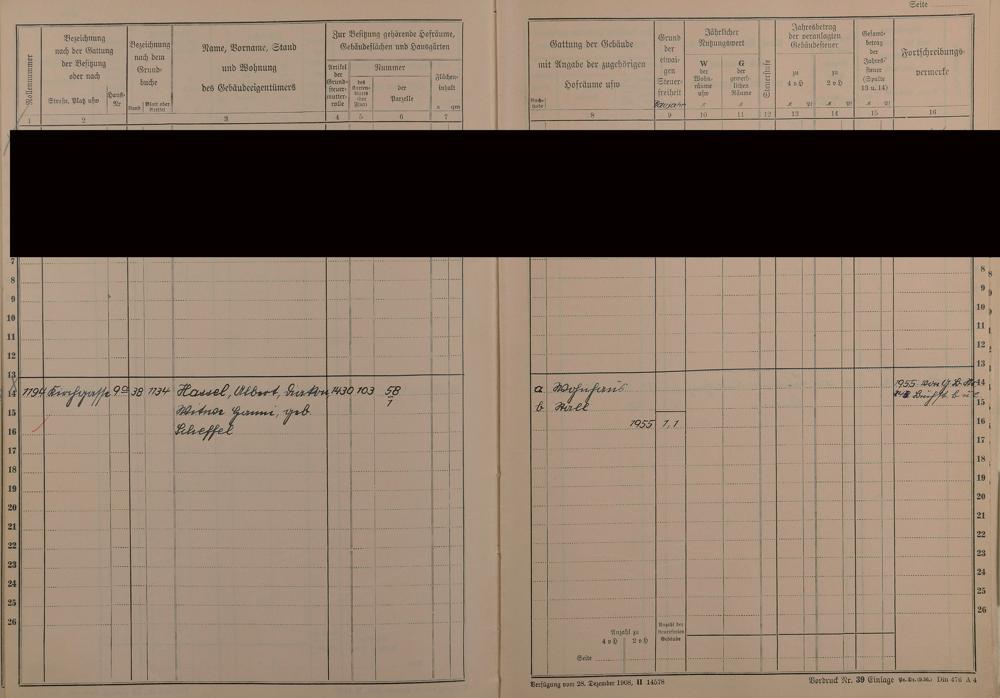 Seite
Rollennummer
Bezeichnung
nach der Gattung
der Besitzung
oder nach
Straße, Platz usw
Haus-
Nr
Bezeichnung
nach dem
Grund-
buche
Band
Blatt oder
Artikel
Name, Vorname, Stand
und Wohnung
des Gebäudeeigentümers
Zur Besitzung gehörende Hofräume,
Gebäudeflächen und Hausgärten
Artikel
der
Grund-
steuer-
mutter-
rolle
Nummer
des
Karten-
blattes
der
Parzelle
Flächen-
inhalt
a qm
1 2 3 4 5 6 7
Gattung der Gebäude
mit Angabe der zugehörigen
Hofräume usw
Buch-
stabe
Grund
der
etwai-
gen
Steuer-
freiheit
Jährlicher
Nutzungswert
W
der
Wohn-
räume
usw
G
der
gewerb-
lichen
Räume
Steuerstufe
Jahresbetrag
der veranlagten
Gebäudesteuer
zu
4 v H
zu
2 v H
Gesamt-
betrag
der
Jahres-
steuer
(Spalte
13 u. 14)
Fortschreibungs-
vermerke
8 9 10 11 12 13 14 15 16
7
8
9
10
11
12
13
14
1194 Kirchgasse 9a 38 1134 Hassel, Albert, 1430 103 58
1
15
Witwe geb
16
Scheffel
17
18
19
20
21
22
23
24
25
26
a Wohnhaus
b Stall
1955 1,1
1955 von
8
9
10
11
12
13
14
15
16
17
18
19
20
21
22
23
24
25
26
Anzahl zu
4 v H 2 v H
Anzahl der
steuerfreien
Gebäude
Seite
Verfügung vom 28. Dezember 1908, II 14578
Vordruck Nr. 39 Einlage
Din 476 A 4